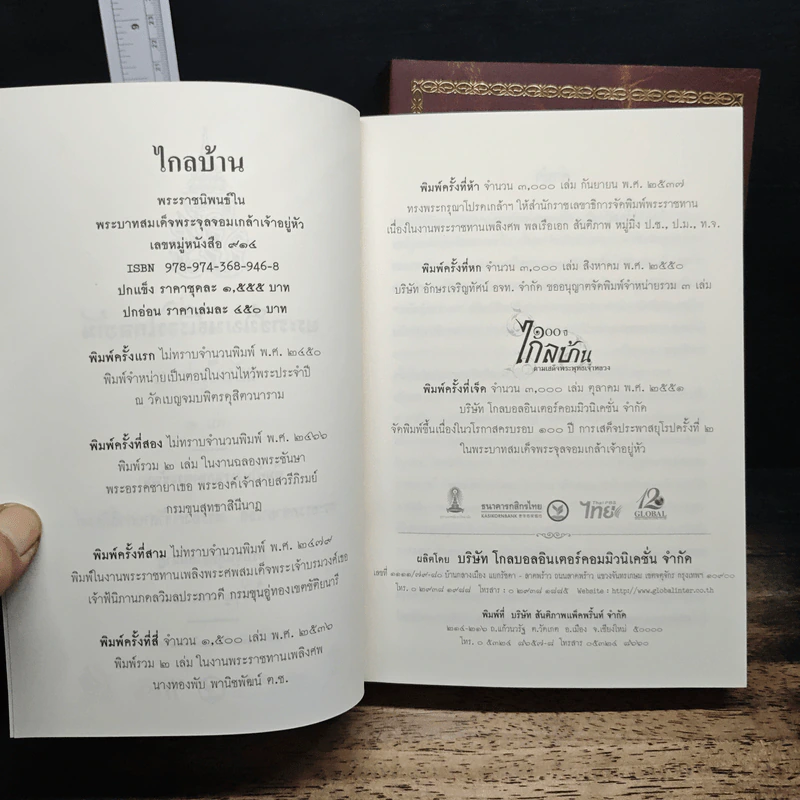 6
ไกลบ้าน
พระราชนิพนธ์ใน
พระบาทสมเด็จพระจุลจอมเกล้าเจ้าอยู่หัว
เลขหมู่หนังสือ ๙๑๔
ISBN 978-974-368-946-8
ปกแข็ง ราคาชุดละ ๑,๕๕๕ บาท
ปกอ่อน ราคาเล่มละ ๔๕๐ บาท
พิมพ์ครั้งแรก ไม่ทราบจำนวนพิมพ์ พ.ศ. ๒๔๕๐
พิมพ์จำหน่ายเป็นตอนในงานไหว้พระประจำปี
ณ วัดเบญจมบพิตรดุสิตวนาราม
พิมพ์ครั้งที่สอง ไม่ทราบจำนวนพิมพ์ พ.ศ. ๒๔๖๖
พิมพ์รวม ๒ เล่ม ในงานฉลองพระชันษา
พระอรรคชายาเธอ พระองค์เจ้าสายสวลีภิรมย์
กรมขุนสุทธาสินีนาฏ
พิมพ์ครั้งที่สาม ไม่ทราบจำนวนพิมพ์ พ.ศ. ๒๔๗๙
พิมพ์ในงานพระราชทานเพลิงพระศพสมเด็จพระเจ้าบรมวงศ์เธอ
เจ้าฟ้านิภานภดลวิมลประภาวดี กรมขุนอู่ทองเขตขัติยนารี
พิมพ์ครั้งที่สี่ จำนวน ๑,๕๐๐ เล่ม พ.ศ. ๒๕๓๖
พิมพ์รวม ๒ เล่ม ในงานพระราชทานเพลิงศพ
นางทองพับ พานิชพัฒน์ ต.ช.
พิมพ์ครั้งที่ห้า จำนวน ๓,๐๐๐ เล่ม กันยายน พ.ศ. ๒๕๓๗
ทรงพระกรุณาโปรดเกล้าฯ ให้สำนักราชเลขาธิการจัดพิมพ์พระราชทาน
เนื่องในงานพระราชทานเพลิงศพ พลเรือเอก สันติภาพ หมู่มิ่ง ป.ช., ป.ม., ท.จ.
พิมพ์ครั้งที่หก จำนวน ๓,๐๐๐ เล่ม สิงหาคม พ.ศ. ๒๕๕๐
บริษัท อักษรเจริญทัศน์ อจท. จำกัด ขออนุญาตจัดพิมพ์จำหน่ายรวม ๓ เล่ม
๑๐๐ ปี
ไกลบ้าน
ตามเสด็จพระพุทธเจ้าหลวง
พิมพ์ครั้งที่เจ็ด จำนวน ๓,๐๐๐ เล่ม ตุลาคม พ.ศ. ๒๕๕๑
บริษัท โกลบอลอินเตอร์คอมมิวนิเคชั่น จำกัด
จัดพิมพ์ขึ้นเนื่องในวโรกาสครบรอบ ๑๐๐ ปี การเสด็จประพาสยุโรปครั้งที่ ๒
ในพระบาทสมเด็จพระจุลจอมเกล้าเจ้าอยู่หัว
ธนาคารกสิกรไทย
KASIKORNBANK
ไทย
12
GLOBAL
ผลิตโดย บริษัท โกลบอลอินเตอร์คอมมิวนิเคชั่น จำกัด
เลขที่ ๑๑๑๑/๗๙-๘๐ บ้านกลางเมือง แยกรัชดา - ลาดพร้าว ถนนลาดพร้าว แขวงจันทรเกษม เขตจตุจักร กรุงเทพฯ ๑๐๙๐๐
Website : http//www.globalinter.co.th
พิมพ์ที่ บริษัท สันติภาพแพ็คพริ้นท์ จำกัด
๒๑๔-๒๑๖ ถ.แก้วนวรัฐ ต.วัดเกต อ.เมือง จ.เชียงใหม่ ๕๐๐๐๐